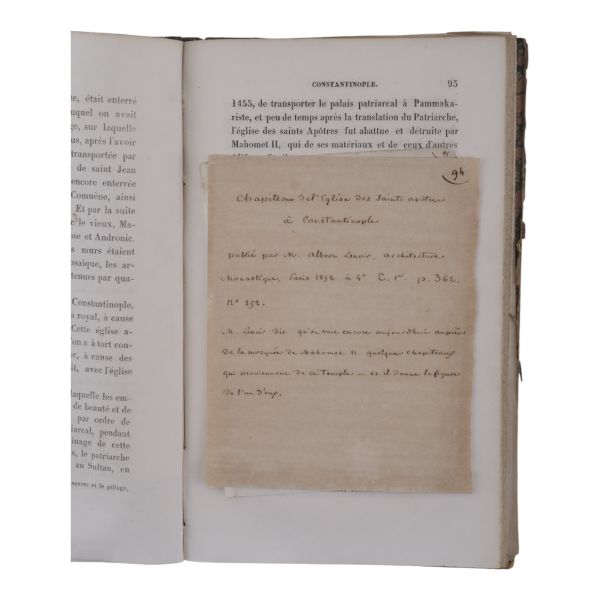 se, était enterré
uquel on avait
ge, sur laquelle
us, après l'avoir
transportée par
de saint Jean
encore enterrée
Comnène, ainsi
Et par la suite
c le vieux, Ma-
ose et Andronic.
s murs étaient
osaïque, les ar-
tenues par qua-
Constantinople,
s royal, à cause
Cette église a-
on a à tort con-
or, à cause des
it, avec l'église
laquelle les em-
de beauté et de
par ordre de
iarcal, pendant
inage de cette
s, le patriarche
au Sultan, en
auvère et le pillage,
CONSTANTINOPLE. 95
1455, de transporter le palais patriarcal à Pammaka-
riste, et peu de temps après la translation du Patriarche,
l'église des saints Apôtres fut abattue et détruite par
Mahomet II, qui de ses matériaux et de ceux d'autres
94
Chapiteau de l'Eglise des Saints apotres
à Constantinople
publié par M. Albert Lenoir, architecture
Monastique, Paris 1852 in 4° T. 1er p. 362.
N° 252.
M. Lenoir dit qu'on voit encore aujourdhui auprès
de la mosquée de Mahomet II. quelques chapiteaux
qui proviennent de ce temple — et il donne la figure
de l'un d'eux.